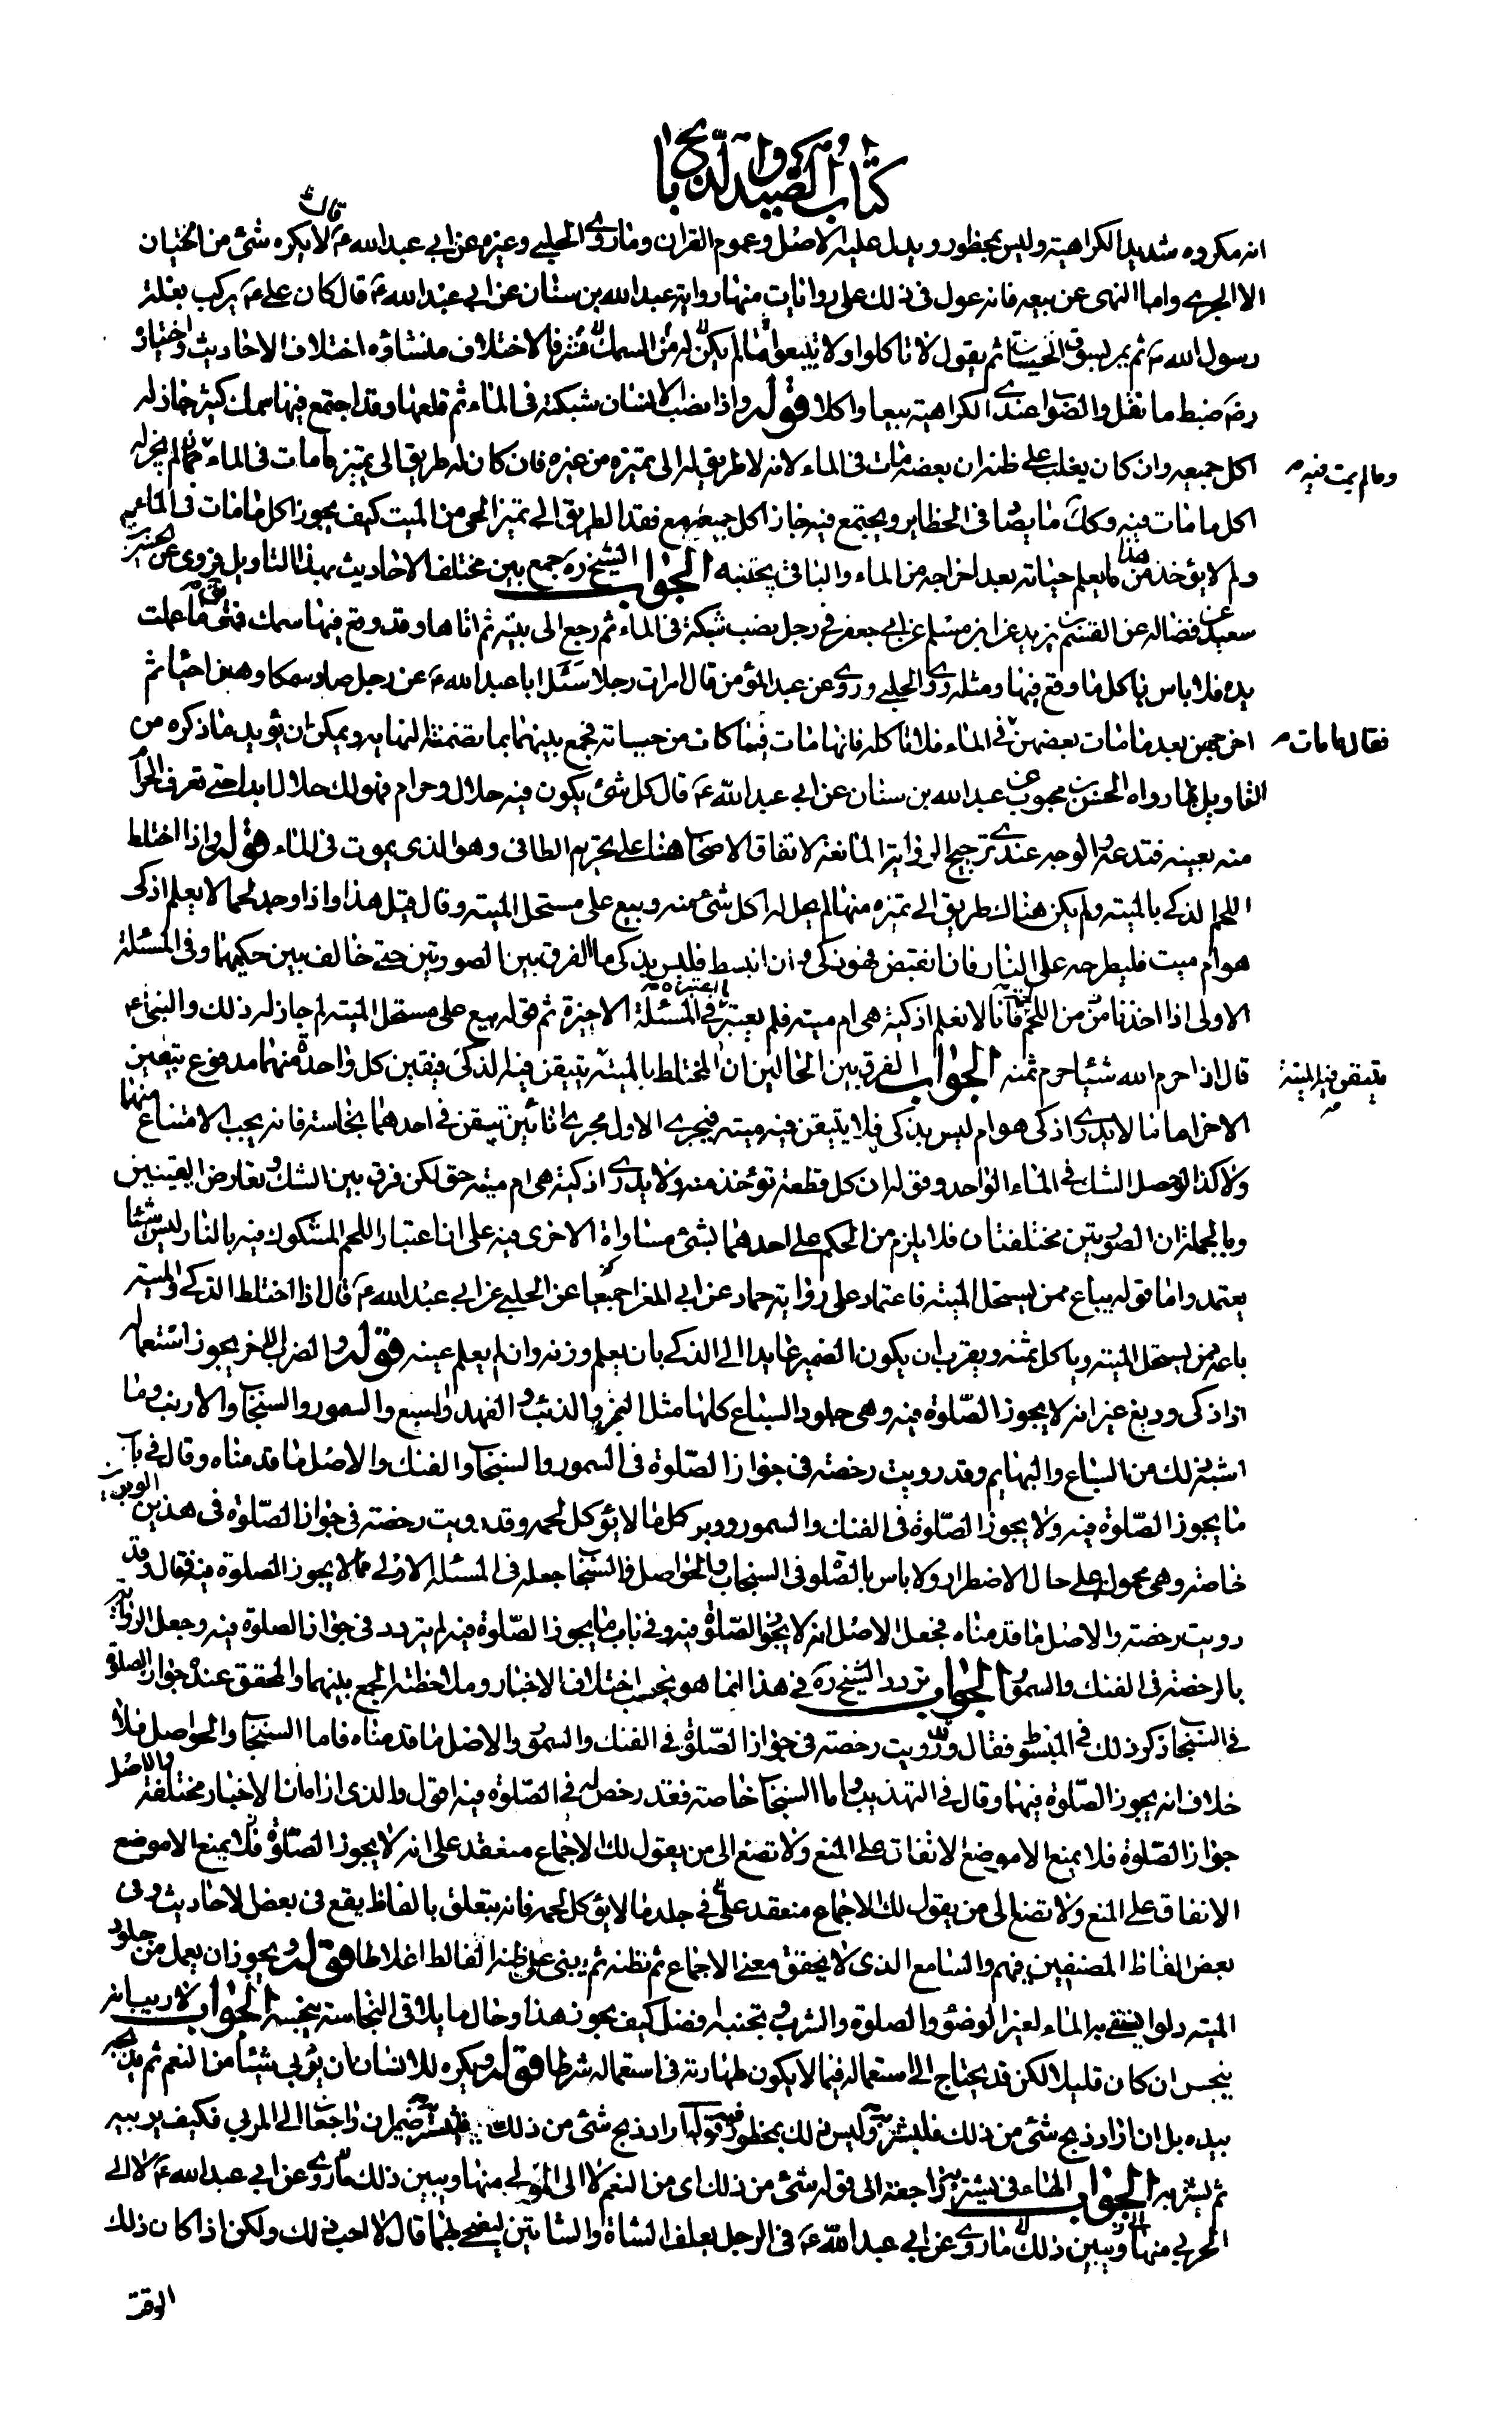 كتاب الصيد والذبايح
انه مكروه شديد الكراهية وليس بمحظور ويدل عليه الاصل وعموم القران وما روى الحلبي وغيره عن ابي عبد الله ع قال لا يكره شئ من الحيتان
الا الجرى واما النهى عن بيعه فانه عول فى ذلك على روايات منها رواية عبد الله بن سنان عن ابي عبد الله ع قال كان على ع يركب بغلة
رسول الله ص ثم يمر بسوق الحيتان ثم يقول لا تاكلوا ولا تبيعوا ما لم يكن له من السمك قشر فالاختلاف منشاؤه اختلاف الاحاديث واختياره
رضه ضبط ما نقل والصواب عندى الكراهية بيعا واكلا قوله واذا نصب الانسان شبكة فى الماء ثم قلعها وقد اجتمع فيها سمك كثير جاز له
اكل جميعه وان كان يغلب على ظنه ان بعضه مات فى الماء لانه لا طريق له الى تميزه من غيره فان كان له طريق الى تميز ما مات فى الماء مما لم يجز له
وما لم يمت فيه
اكل ما مات فيه وكك ما يصاد فى الحظاير ويجتمع فيه جاز اكل جميعه مع فقد الطريق الى تميز الحى من الميت كيف يجوز اكل ما مات فى الماء
ولم لا يؤخذ من هذا ما يعلم حياته بعد اخراجه من الماء والباقى يجتنبه الجواب الشيخ ره جمع بين مختلف الاحاديث بهذا التاويل فروى عن الحسين بن
سعيد عن فضاله عن القسم بن بريد عن ابن مسلم عن ابي جعفر ع فى رجل نصب شبكة فى الماء ثم رجع الى بيته ثم اتاها وقد وقع فيها سمك فمتن فقال ما عملت
يده فلا باس باكل ما وقع فيها ومثله روى الحلبي وروى عن عبد المؤمن قال امرت رجلا سئل ابا عبد الله ع عن رجل صاد سمكا وهن احياء ثم
اخرجهن بعد ما مات بعضهن فقال ما مات فى الماء فلا تاكله فانها مات فيما كان من حياته فجمع بينهما بما تضمنته النهاية ويمكن ان يؤيد ما ذكره من
التاويل بما رواه الحسن بن محبوب عن عبد الله بن سنان عن ابي عبد الله ع قال كل شئ يكون فيه حلال وحرام فهو لك حلال ابدا حتى تعرف الحرام
منه بعينه فتدعه والوجه عندى ترجيح الرواية المانعة لاتفاق الاصحاب هنا على تحريم الطافى وهو الذى يموت فى الماء قوله واذا اختلط
اللحم الذكى بالميتة ولم يكن هناك طريق الى تميزه منها لم يحل له اكل شئ منه وبيع على مستحل الميتة وقال قبل هذا واذا وجد لحما لا يعلم اذكى
هو ام ميت فليطرحه على النار فان انقبض فهو ذكى وان انبسط فليس بذكى ما الفرق بين الصورتين حتى خالف بين حكيمها وفى المسئلة
الاولى اذا اخذنا من اللحم فانا لا نعلم اذكية هى ام ميته فلم يعتبر ما اعتبره فى المسئلة الاخيرة ثم قوله بيع على مستحل الميتة لم جاز له ذلك والنبى ع
قال اذا حرم الله شيئا حرم ثمنه الجواب الفرق بين الحالين ان المختلط بالميتة يتيقن فيه الذكى فيقين كل واحدة منهما مدفوع بتيقن
متيقن فيه الميتة
الاخر اما ما لا يدرى اذكى هو ام ليس بذكى فلا يتيقن فيه ميته فيجرى الاول مجرى انائين تيقن فى احدهما نجاسة فانه يجب الامتناع منهما
ولا كذا لو حصل الشك فى الماء الواحد وقوله ان كل قطعة تؤخذ منه ولا يدرى اذكية هى ام ميتة حق لكن فرق بين الشك وتعارض اليقينين
وبالجملة ان الصورتين مختلفتان فلا يلزم من الحكم على احدهما بشئ مساواة الاخرى فيه على ان اعتبار اللحم المشكوك فيه بالنار ليس شيئا
يعتمد واما قوله يباع ممن يستحل الميتة فاعتماد على رواية حماد عن ابي المغرا جميعا عن الحلبي عن ابي عبد الله ع قال اذا اختلط الذكى والميتة
باعه ممن يستحل الميتة وياكل ثمنه ويقرب ان يكون الضمير عايدا الى الذكى بان يعلم وزنه وان لم يعلم عينه قوله والضرب الاخر يجوز استعماله
اذا ذكى ودبغ غير انه لا يجوز الصلوة فيه وهى جلود السباع كلها مثل النمر والذئب والفهد والسبع والسمور والسنجاب والارنب وما
اشبه ذلك من السباع والبهايم وقد رويت رخصة فى جواز الصلوة فى السمور والسنجاب والفنك والاصل ما قدمناه وقال فى باب
ما يجوز الصلوة فيه ولا يجوز الصلوة فى الفنك والسمور ووبر كل ما لا يؤكل لحمه وقد رويت رخصة فى جواز الصلوة فى هذين الوبرين
خاصة وهى محمولة على حال الاضطرار ولا باس بالصلوة فى السنجاب والحواصل فالسنجاب جعله فى المسئلة الاولى مما لا يجوز الصلوة فيه فقال وقد
رويت رخصة والاصل ما قدمناه فجعل الاصل انه لا يجوز الصلوة فيه وفى باب ما يجوز الصلوة فيه لم يتردد فى جواز الصلوة فيه وجعل الرواية
بالرخصة فى الفنك والسمور الجواب تردد الشيخ ره فى هذا انما هو بحسب اختلاف الاخبار وملاحظة الجمع بينهما والمحقق عنده جواز الصلوة
فى السنجاب ذكر ذلك فى المبسوط فقال وقد رويت رخصة فى جواز الصلوة فى الفنك والسمور والاصل ما قدمناه فاما السنجاب والحواصل فلا
خلاف انه يجوز الصلوة فيهما وقال فى التهذيب واما السنجاب خاصة فقد رخص له فى الصلوة فيه اقول والذى اراه ان الاخبار مختلفة والاصل
جواز الصلوة فلا يمنع الا موضع الاتفاق على المنع ولا تصغ الى من يقول لك الاجماع منعقد على انه لا يجوز الصلوة فلا يمنع الا موضع
الاتفاق على المنع ولا تصغ الى من يقول لك الاجماع منعقد على فى جلد ما لا يؤكل لحمه فانه يتعلق بالفاظ يقع فى بعض الاحاديث وفى
بعض الفاظ المصنفين فيهم والسامع الذى لا يحقق معنى الاجماع ثم نظنه ثم يبنى على ظنه الغالط اغلاطا قوله ويجوز ان يعمل من جلود
الميتة دلو ليستقى به الماء لغير الوضوء والصلوة والشرب وتجنبه افضل كيف يجوز هذا وحال ما يلاقى النجاسة ينجسه الجواب لا ريب انه
ينجس ان كان قليلا لكن قد يحتاج الى استعماله فيما لا يكون طهارته فى استعماله شرطا قوله ويكره للانسان ان يربى شيئا من النعم ثم يذبحه
بيده بل ان اراد ذبح شئ من ذلك فليشتره وليس ذلك بمحظور قوله اراد ذبح شئ من ذلك فليشتره ضميران راجعا الى المربى فكيف يربيه
ثم يشتريه الجواب الهاء فى يشتره راجعة الى قوله شئ من ذلك اى من النعم لا الى المربى منها ويبين ذلك ما روى عن ابي عبد الله ع لا الى
المربى منها ويبين ذلك ما روى عن ابي عبد الله ع فى الرجل يعلف الشاة والشاتين ليضحى بها قال لا احب ذلك ولكن اذا كان ذلك
الوقت